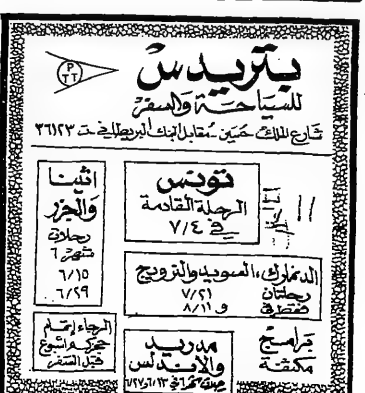 بتريدس
P
T T
للسياحة والسفر
شارع الملك حسين مقابل البنك البريطاني ت ٣٦١٢٣
اثينا
والجزر
رحلات
شهر ٦
٦/١٥
٦/٢٩
تونس
الرحلة القادمة
في ٧/٤
الدنمارك، السويد والنرويج
رحلتان
فقط في
٧/٢١
و ٨/١١
الرجاء
حجزكم اسبوع
قبل السفر
مدريد
والاندلس
٦/١٣ و ٦/٢٧
برامج
مكثفة